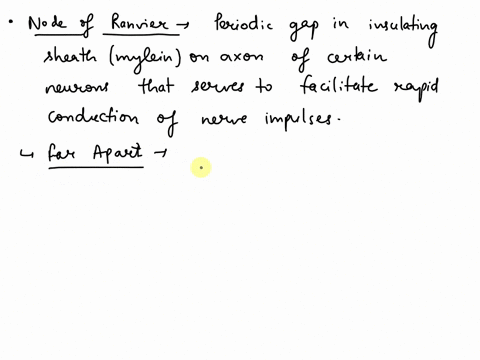 • Node of Ranvier → Periodic gap in insulating
sheath (mylein) on axon of certain
neurons that serves to facilitate rapid
conduction of nerve impulses.
↳ Far Apart →